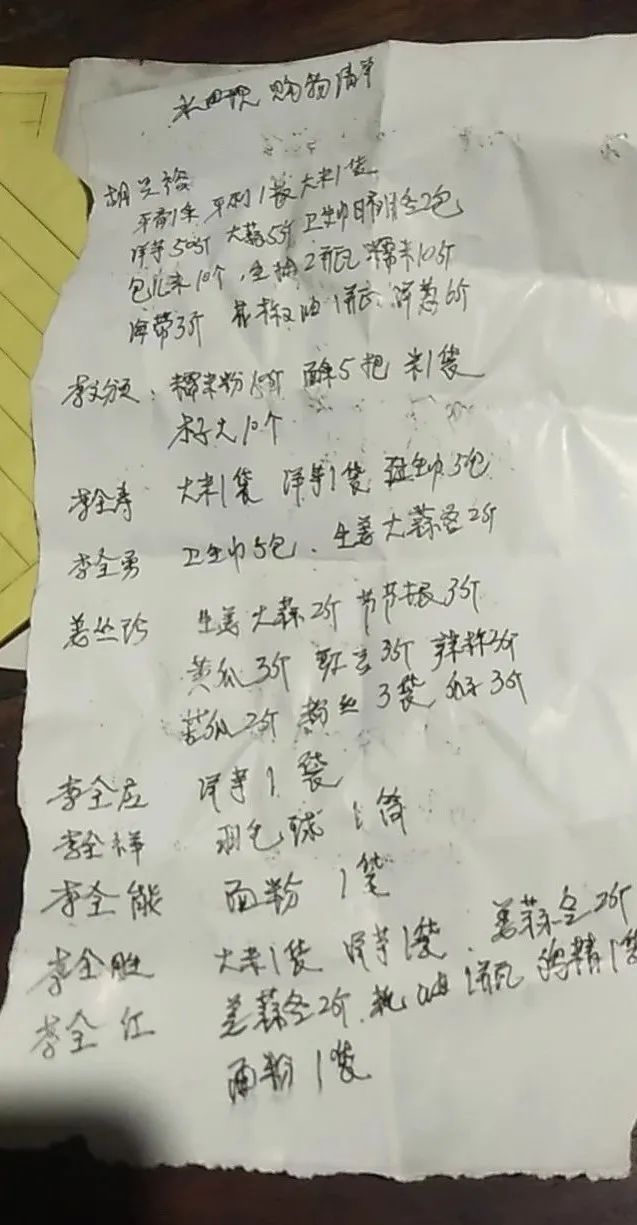 水田坝 购物清单
胡兴裕
大米1袋
洋芋50斤 大蒜5斤 卫生巾日用夜用各2包
包儿米10个 生抽2瓶 糯米10斤
海带3斤 花椒油1瓶 洋葱6斤
糯米粉15斤 面条5把 米1袋
10个
李全寿 大米1袋 洋芋1袋 卫生巾5包
李全勇 卫生巾5包、生姜大蒜各2斤
姜丛 生姜大蒜2斤 节节根3斤
黄瓜3斤 豇豆3斤 辣椒3斤
苦瓜2斤 粉丝3袋 3斤
李全应 洋芋1袋
李全祥 羽毛球1筒
李全能 面粉1袋
李全胜 大米1袋 洋芋1袋、姜蒜各2斤
李全红 姜蒜各2斤 1瓶 鸡精1袋
面粉1袋